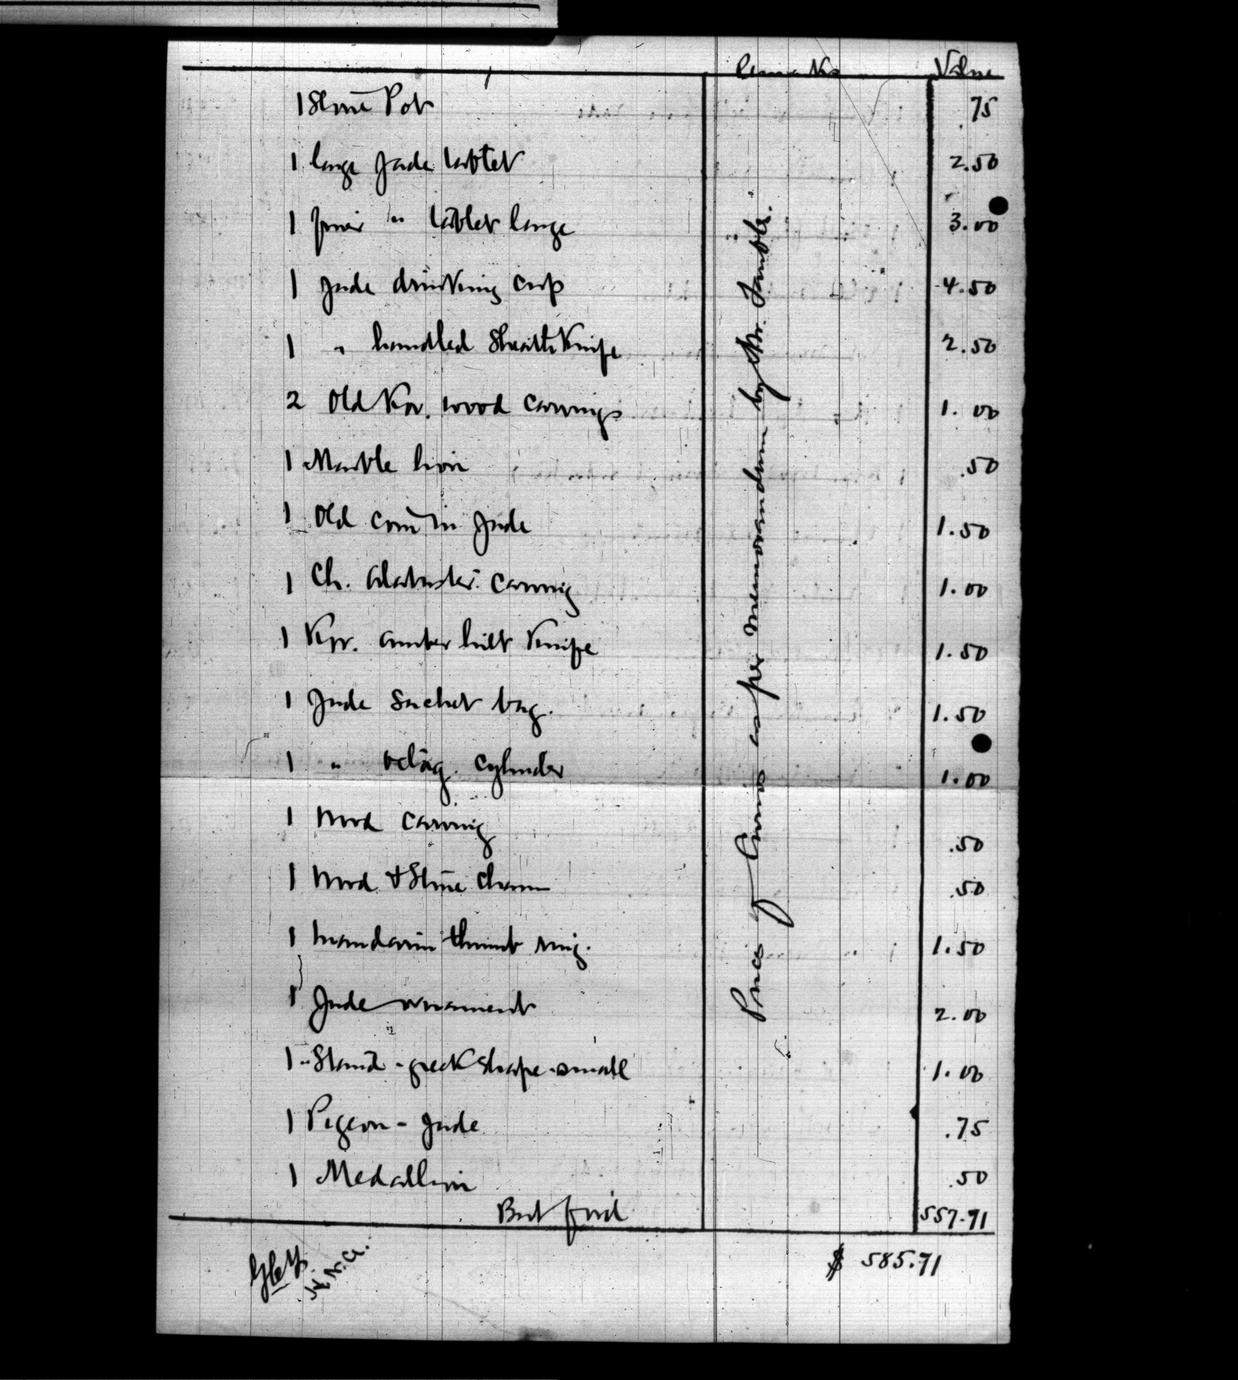 Remarks Value
1 Stone Pot .75
1 large Jade tablet 2.50
1 " tablet large 3.00
1 Jade drinking cup 4.50
1 " handled Sheath Knife 2.50
2 Old Kor. wood carvings 1.00
1 Marble lion .50
1 Old coin in Jade 1.50
1 Ch. Alabaster carving 1.00
1 Kor. amber hilt Knife 1.50
1 Jade Sachet bag. 1.50
1 " octag. cylinder 1.00
1 Wood carving .50
1 Wood & Stone charm .50
1 Mandarin thumb ring. 1.50
1 Jade ornament 2.00
1 Stand - greek shape - small 1.00
1 Pigeon - Jade .75
1 Medallion .50
Bro't for'd 557.71
$ 585.71
Prices of Curios as per memorandum by Mr.